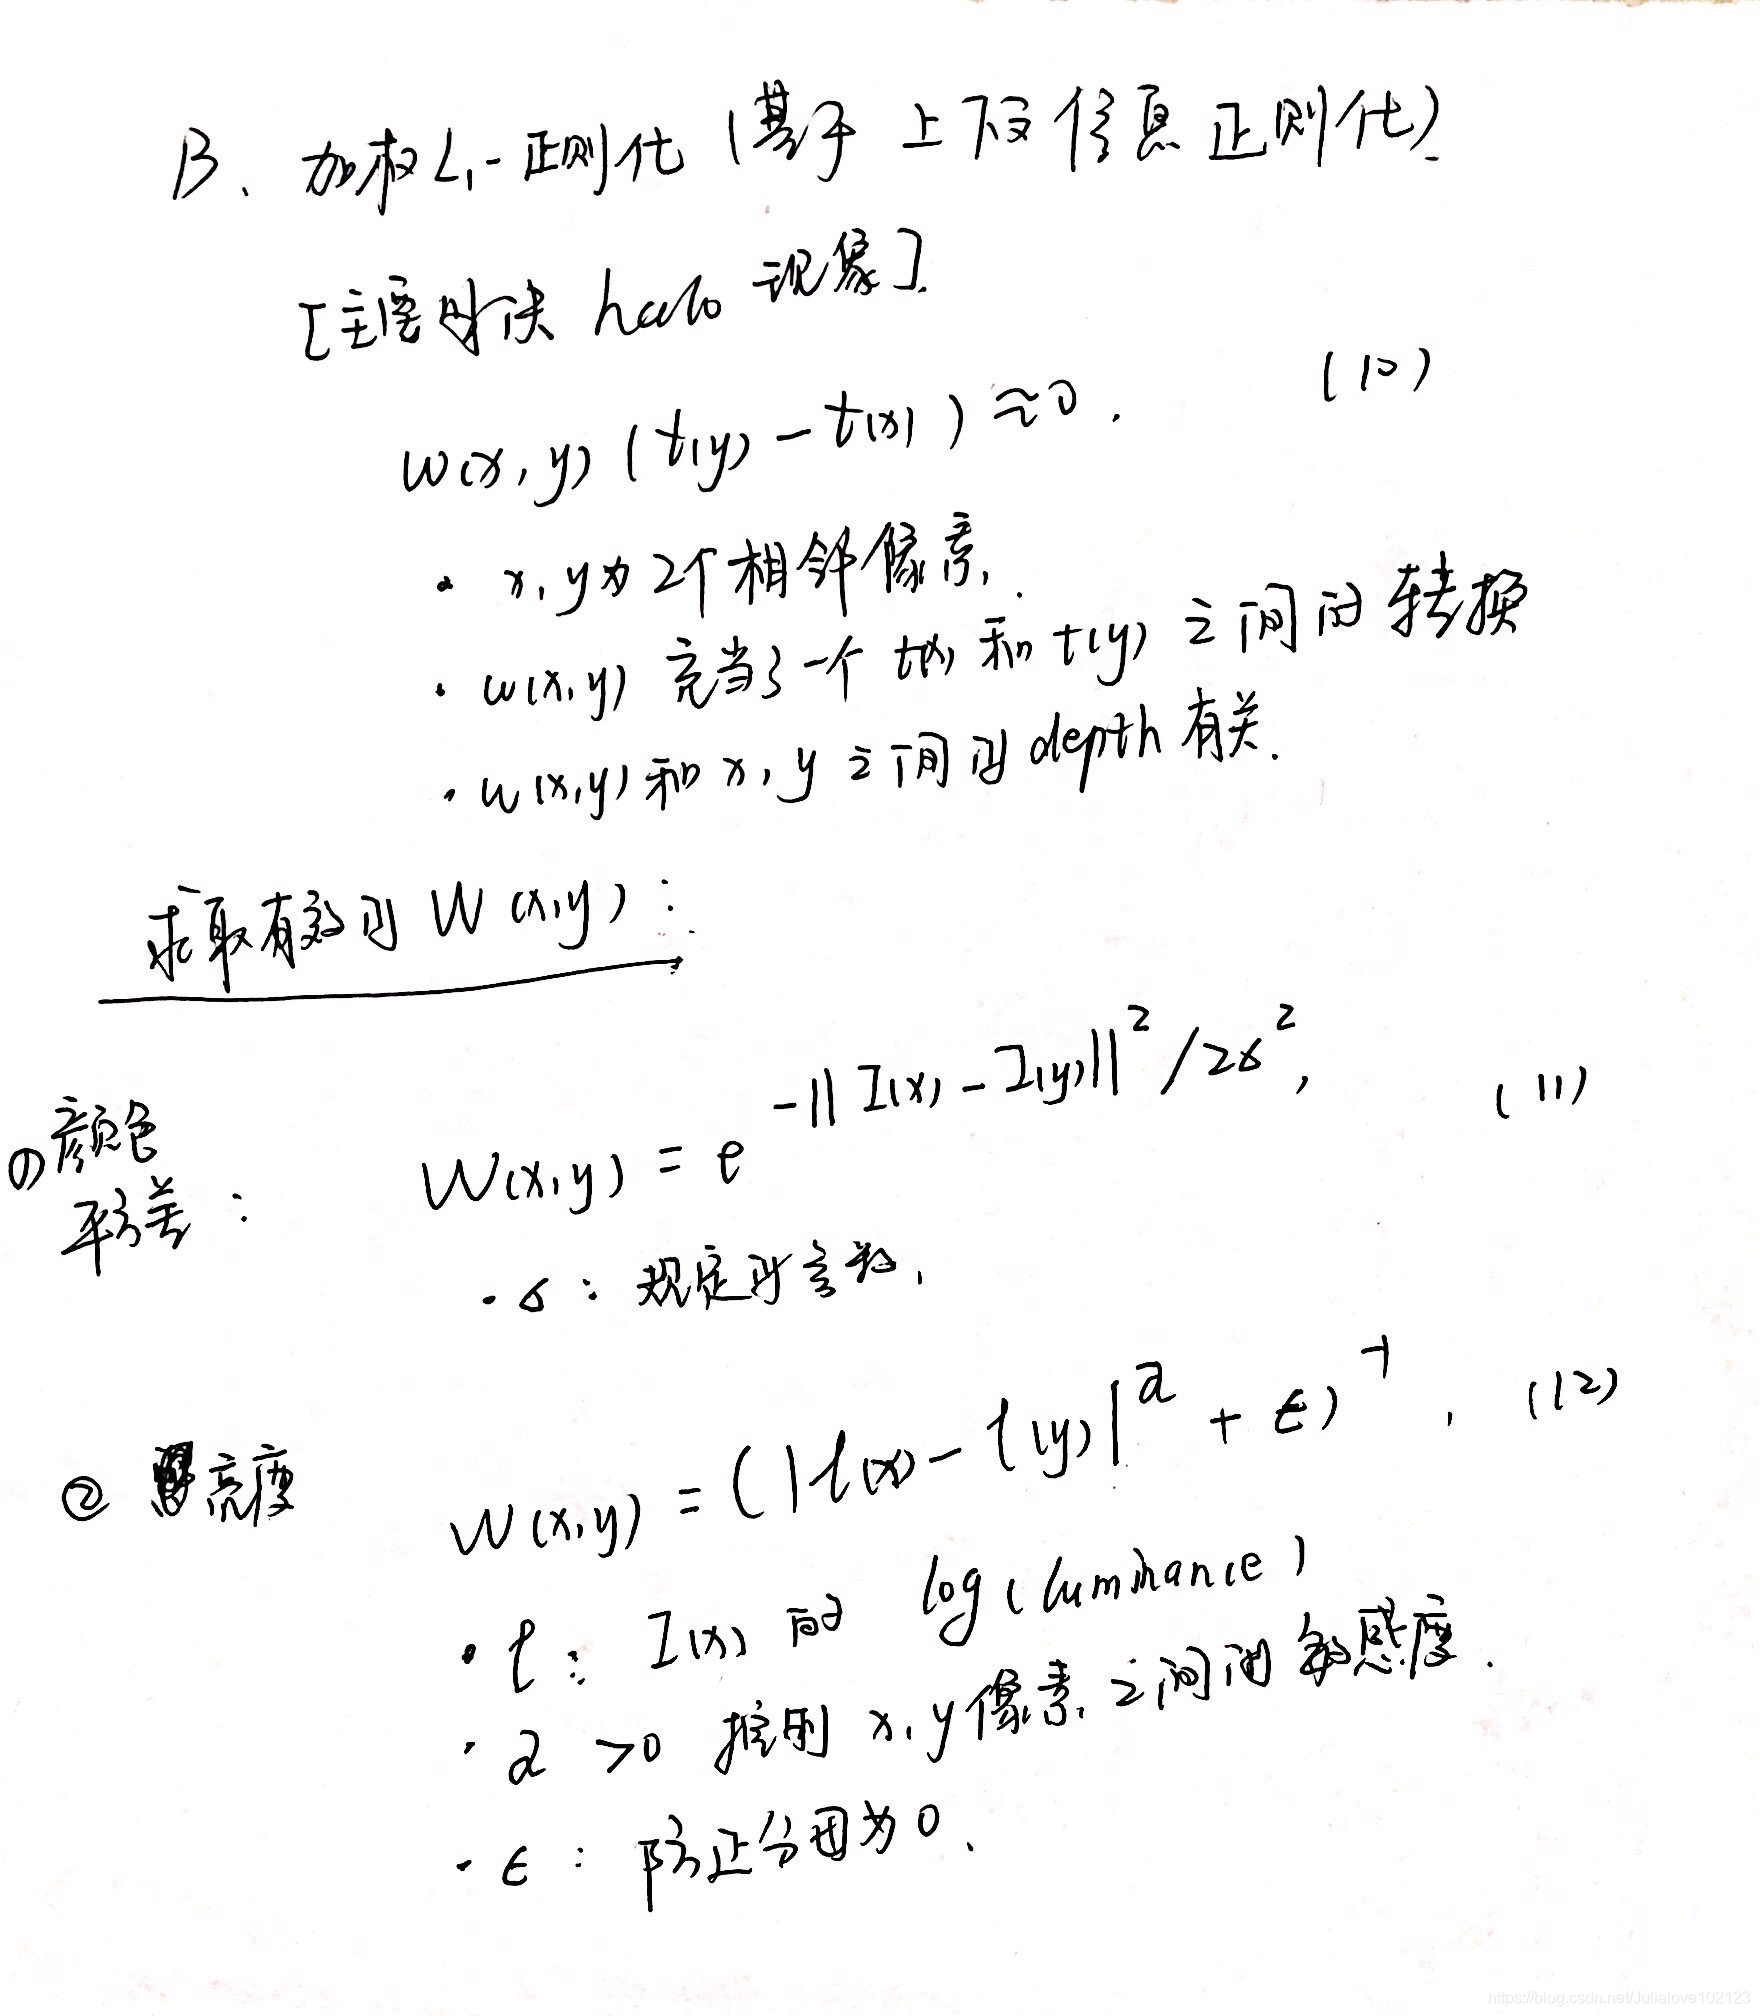 B、加权L₁-正则化(基于上下文信息正则化)
[主要解决 halo 现象].
W(x,y)(t(y)-t(x))≈0. (10)
· x,y为2个相邻像素.
· w(x,y) 充当了一个 t(x) 和 t(y) 之间的转换
· w(x,y) 和 x,y 之间的 depth 有关.
求取有效的 W(x,y):
①颜色
平方差:
W(x,y) = e^{-||I(x)-I(y)||²/2σ²}, (11)
· σ: 规定的参数,
② 亮度
W(x,y) = (|ℓ(x)-ℓ(y)|^α + ε)^{-1}, (12)
· ℓ: I(x) 的 log(luminance)
· α >0 控制 x,y像素之间的敏感度.
· ε: 防止分母为0.
https://blog.csdn.net/Julialove102123